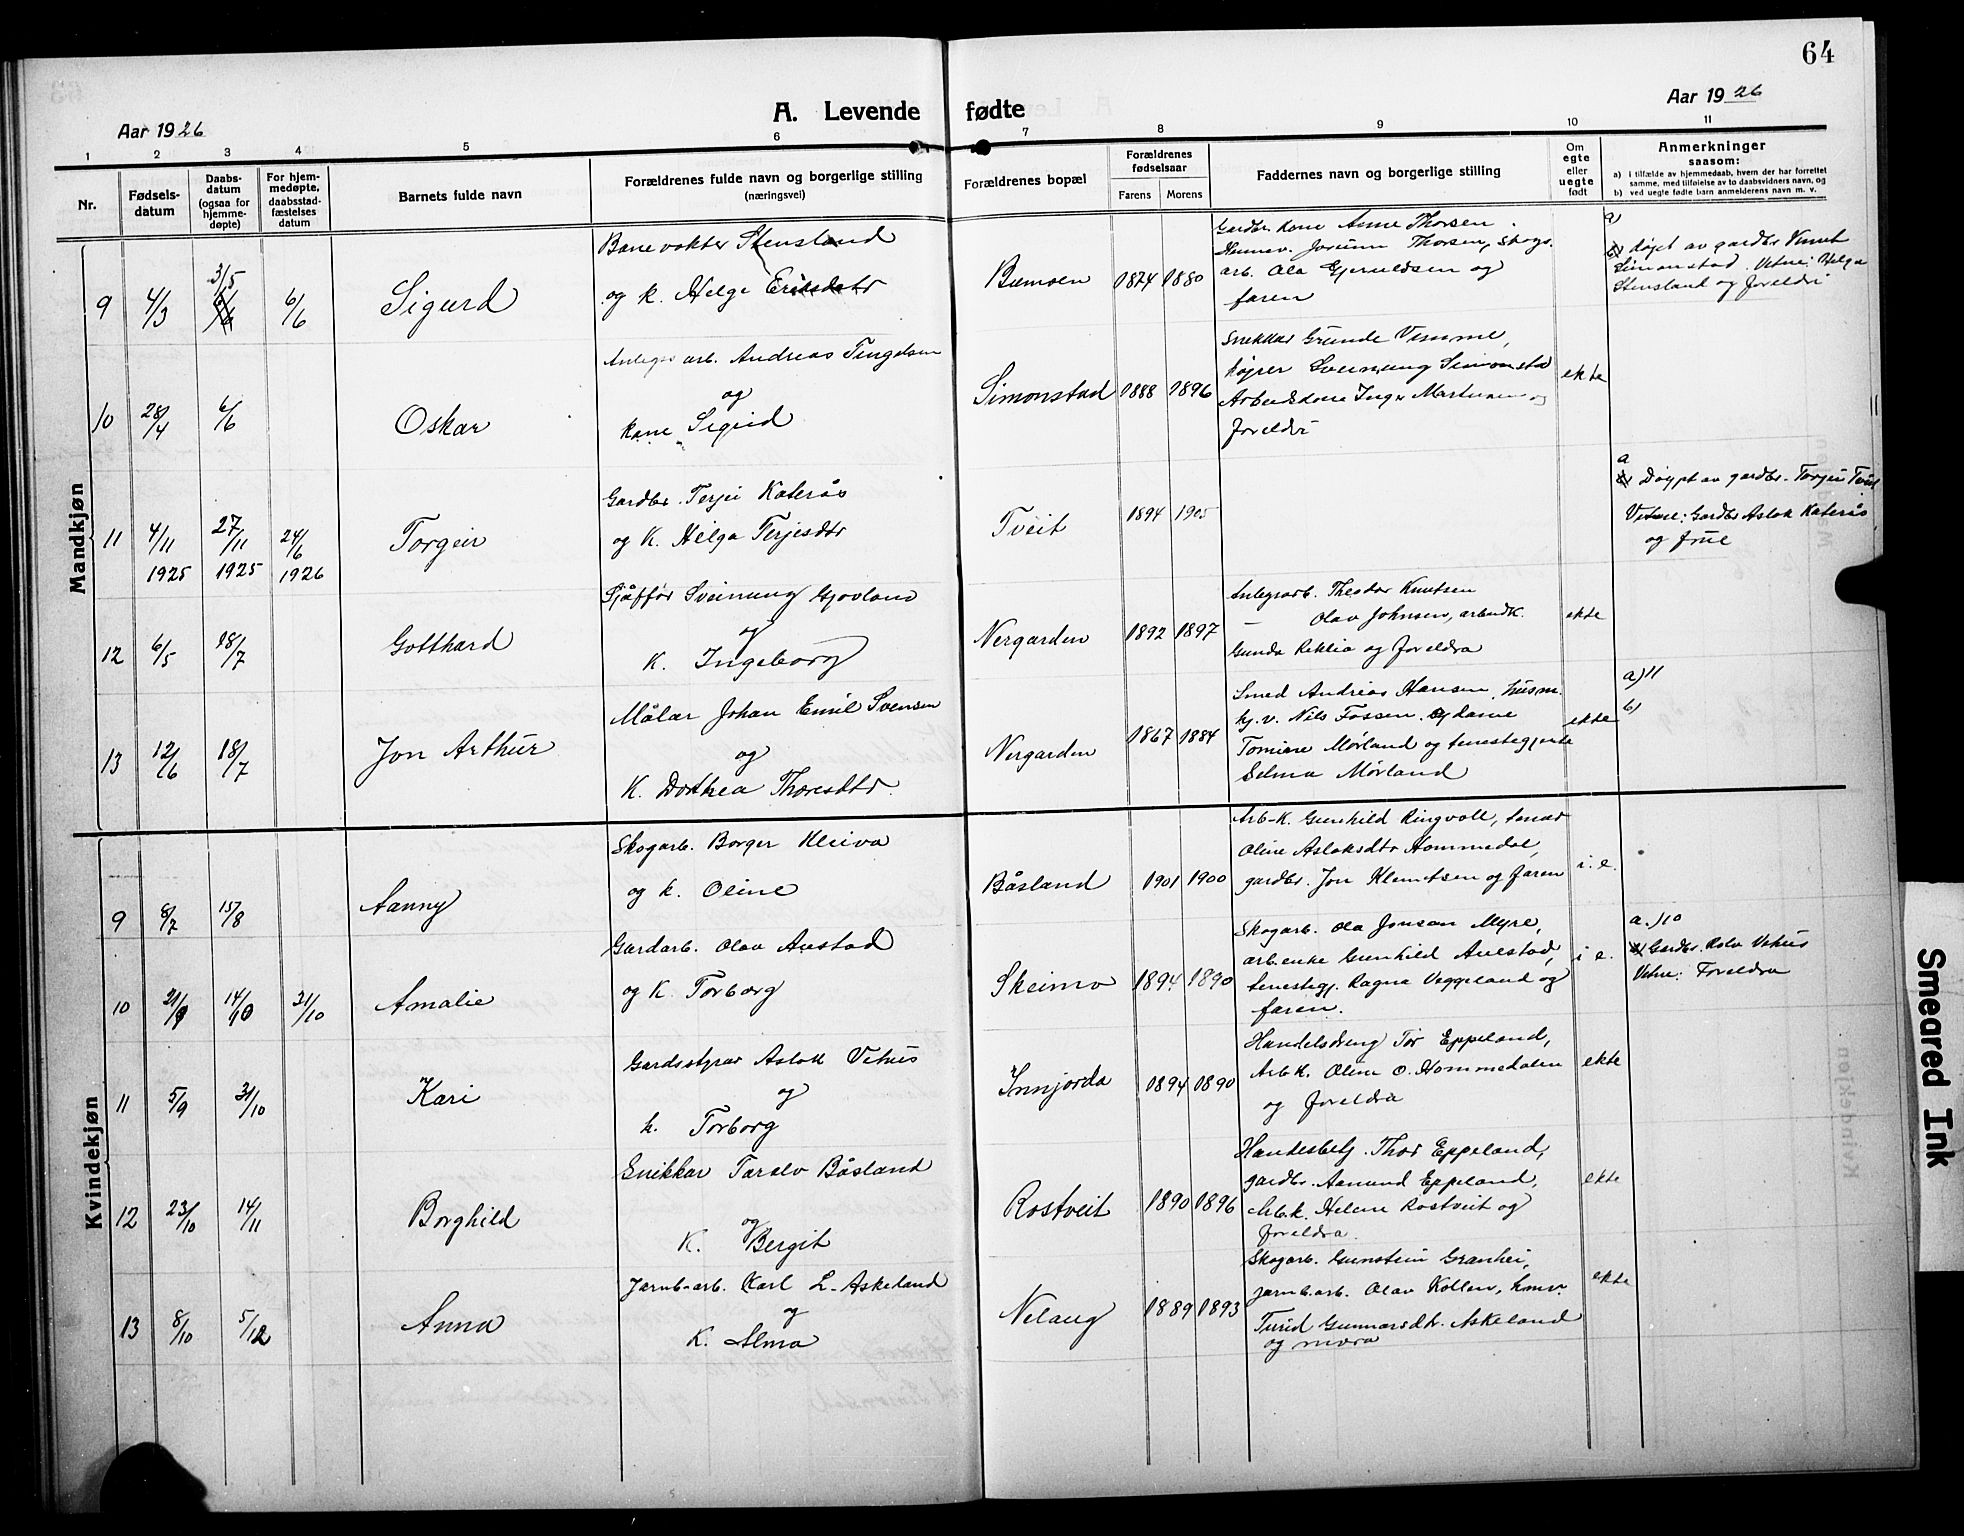 64
A. Levende fødte
Aar 1926
Aar 1926
1 2 3 4 5 6 7 8 9 10 11
Nr.
Fødsels-
datum
Daabs-
datum
(ogsaa for
hjemme-
døpte)
For hjem-
medøpte,
daabsstad-
fæstelses
datum
Barnets fulde navn
Forældrenes fulde navn og borgerlige stilling
(næringsvei)
Forældrenes bopæl
Forældrenes
fødselsaar
Farens Morens
Faddernes navn og borgerlige stilling
Om
egte
eller
uegte
født
Anmerkninger
saasom:
a) i tilfælde av hjemmedaab, hvem der har forrettet
samme, med tilføielse av to daabsvidners navn, og
b) ved uegte fødte barn anmelderens navn m. v.
Mandkjøn
9 4/3 3/5 6/6 6/6 Sigurd
Banevokter Stensland
og k. Helge Eriksdatr
1874 1880
Gardbr. kone Anne Thorsen.
Thorsen, skogs.
arb. Ola Gjeruldsen og
faren
a
døpt av gardbr. Vimet
Simonstad. Vetne: Helga
Stensland og foreldri
10 28/4 6/6 Oskar
Anlegs arb. Andreas Tengelsen
og
kone Sigrid
Simonstad 1888 1896
Snekkar Grunde Vimme,
køjrer Sveinung Simonstad
Arbeidskone Inger og
foreldri
ekte
11 4/11 1925 27/11 1925 24/6 1926 Torgeir
Gardbr. Terjei Katerås
og K. Helga Terjesdtr
Tveit 1894 1905
a
Døypt av gardbr. Torjei
Vetne: Gardbr Aslak Katerås
og frue
12 6/5 18/7 Gotthard
Sjåffør Sveinung Gjovland
og
K. Ingeborg
Nergarden 1892 1897
Anlegsarb. Theodor Knutsen
— Olav Johnsen, arbeidk.
Gunda Reklia og foreldra
ekte
13 12/6 18/7 Jon Arthur
Målar Johan Emil Svensen
og
K. Dorthea Thoresdtr.
Nergarden 1867 1884
Smed Andreas Hansen, husm.
kj. v. Nils Fossen, sydame
Tomine Mørland og tenestegjente
Selma Mørland
ekte
a) 11
b)
Kvindekjøn
9 8/7 15/8 Aanny
Skogarb. Borger Kleiva
og k. Oline
Båsland 1901 1900
Arb-K. Gunhild Ringvoll,
Oline Aslaksdtr Hommedal,
gardbr. Jon Klemetsen og faren
i. e.
10 21/9 14/10 31/10 Amalie
Gardarb. Olav Austad
og K. Torborg
Skeimo 1894 1890
Skogarb. Ola Jonsen Myre,
arb. enke Gunhild Aulstad,
tenestegj. Ragna Veggeland og
faren.
i e.
a.) 10
Gardbr. Rolv Vehus
Vetne: Foreldra
11 5/9 31/10 Kari
Gardsstyrar Aslak Vehus
og
k. Torborg
Innjorda 1894 1890
Handelsdreng Tor Eppeland,
Arb K. Oline O. Hommedalen
og foreldra
ekte
12 23/10 14/11 Borghild
Snikkar Tarald Båsland
og
K. Bergit
Rostveit 1890 1896
Handesbetj. Thor Eppeland,
gardbr. Aanund Eppeland,
Arb. k. Helene Rostveit og
foreldra.
ekte
13 8/10 5/12 Anna
Jarnb-arb. Karl L. Askeland
og
K. Alma
Nelaug 1889 1893
Skogarb. Gunstein Granhei,
jarnb. arb. Olav Kollen, hmv.
Turid Gunnarsdtr. Askeland
og mora
ekte
Smeared Ink